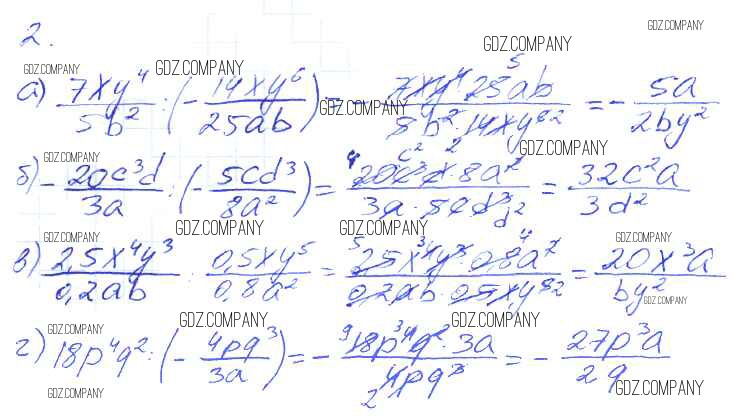 2.
GDZ.COMPANY GDZ.COMPANY GDZ.COMPANY GDZ.COMPANY
а) 7xy⁴/5b² : (- 14xy⁶/25ab) = - 7xy⁴·25ab/5b²·14xy⁶ = - 5a/2by²
GDZ.COMPANY
GDZ.COMPANY GDZ.COMPANY
б) - 20c³d/3a : (- 5cd³/8a²) = 20c³d·8a²/3a·5cd³ = 32c²a/3d²
GDZ.COMPANY GDZ.COMPANY
GDZ.COMPANY GDZ.COMPANY
в) 2,5x⁴y³/0,2ab : 0,5xy⁵/0,8a² = 2,5x⁴y³·0,8a²/0,2ab·0,5xy⁵ = 20x³a/by²
GDZ.COMPANY
GDZ.COMPANY GDZ.COMPANY GDZ.COMPANY
г) 18p⁴q² : (- 4pq³/3a) = - 18p⁴q²·3a/4pq³ = - 27p³a/2q
GDZ.COMPANY GDZ.COMPANY